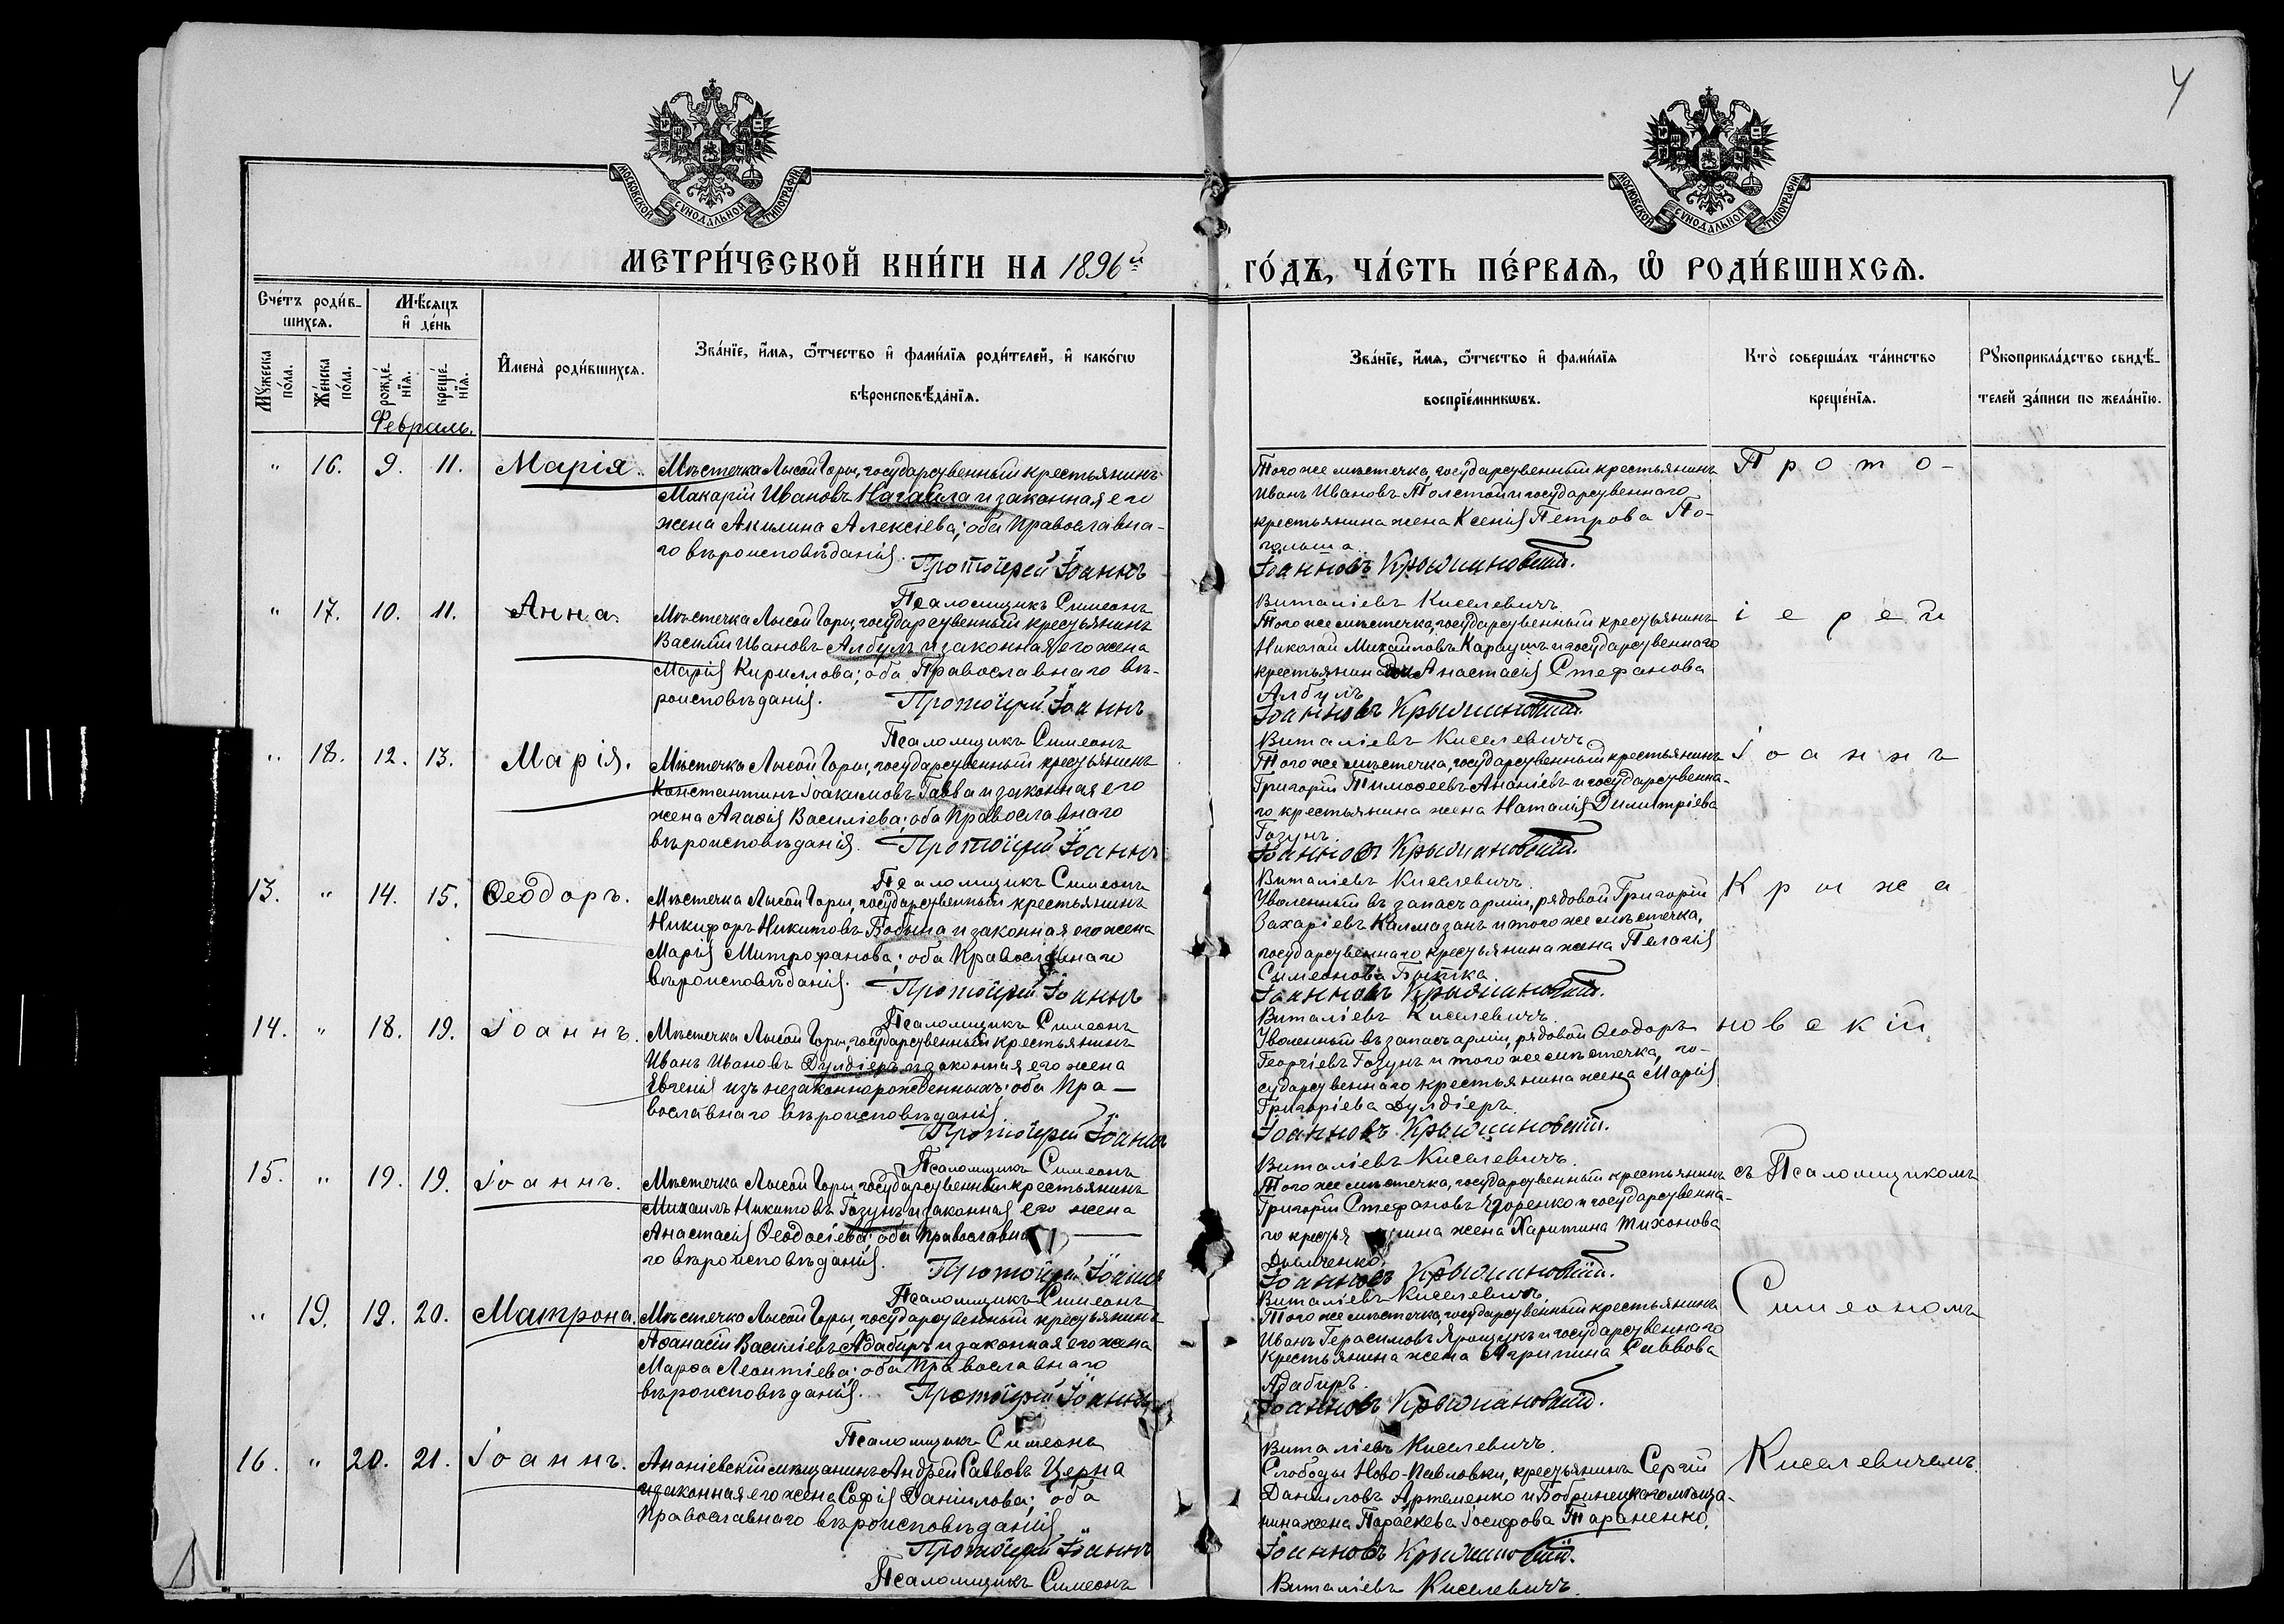 4
МОСКОВСКОЙ СУНОДАЛЬНОЙ ТИПОГРАФІИ
МОСКОВСКОЙ СУНОДАЛЬНОЙ ТИПОГРАФІИ
МЕТРИ́ЧЕСКОЙ КНИ́ГИ НА 1896й
ГО́ДЪ, ЧА́СТЬ ПЕ́РВАЯ, Ѡ РОДИ́ВШИХСЯ.
Сче́тъ роди́в-
шихся.
Мѣ́сяцъ
и де́нь
Му́жеска по́ла.
Же́нска по́ла.
рожде́нїя.
креще́нїя.
Имена̀ роди́вшихся.
Зва́нїе, и́мя, ѻ́тчество и фами́лїя роди́телей, и како́гѡ
вѣроисповѣ́данїя.
Зва́нїе, и́мя, ѻ́тчество и фами́лїя
воспрїе́мникѡвъ.
Кто̀ соверша́лъ та́инство
креще́нїя.
Рукоприкла́дство свидѣ́-
телей за́писи по жела́нїю.
Февраль.
" 16. 9. 11. Марія.
Мѣстечка Лысой Горы, государственный крестьянинъ
Макарій Ивановъ Нагайла и законная его
жена Акилина Алексіева; оба Православна-
го вѣроисповѣданія.
Протоіерей Іоаннъ
Псаломщикъ Симеонъ
Того же мѣстечка, государственный крестьянинъ
Иванъ Ивановъ Толстой и государственнаго
крестьянина жена Ксенія Петрова По-
Іоанновъ Крыжановскій.
Виталіевъ Киселевичъ
Прото-
" 17. 10. 11. Анна.
Мѣстечка Лысой Горы, государственный крестьянинъ
Василій Ивановъ Албулъ и законная его жена
Марія Кириллова; оба Православнаго вѣ-
роисповѣданія.
Протоіерей Іоаннъ
Псаломщикъ Симеонъ
Того же мѣстечка, государственный крестьянинъ
Николай Михайловъ Караушъ и государственнаго
крестьянина Анастасія Стефанова
Албулъ
Іоанновъ Крыжановскій.
Виталіевъ Киселевичъ
іерей
" 18. 12. 13. Марія.
Мѣстечка Лысой Горы, государственный крестьянинъ
Константинъ Іоакимовъ Гавва и законная его
жена Агафія Василіева; оба Православнаго
вѣроисповѣданія.
Протоіерей Іоаннъ
Псаломщикъ Симеонъ
Того же мѣстечка, государственный крестьянинъ
Григорій Тимоѳеевъ Ананіевъ и государственна-
го крестьянина жена Наталія Димитріева
Гозунъ.
Іоанновъ Крыжановскій.
Виталіевъ Киселевичъ.
Іоаннъ
13. " 14. 15. Ѳеодоръ.
Мѣстечка Лысой Горы, государственный крестьянинъ
Никифоръ Никитовъ Бобына и законная его жена
Марія Митрофанова; оба Православнаго
вѣроисповѣданія.
Протоіерей Іоаннъ
Псаломщикъ Симеонъ
Уволенный въ запасъ арміи, рядовой Григорій
Захаріевъ Калмазанъ и того же мѣстечка,
государственнаго крестьянина жена Пелагія
Симеонова
Іоанновъ Крыжановскій.
Виталіевъ Киселевичъ.
Крыжа
14. " 18. 19. Іоаннъ.
Мѣстечка Лысой Горы, государственный крестьянинъ
Иванъ Ивановъ Дулдіеръ и законная его жена
Евгенія изъ незаконнорожденныхъ; оба Пра-
вославнаго вѣроисповѣданія.
Протоіерей Іоаннъ
Псаломщикъ Симеонъ
Уволенный въ запасъ арміи, рядовой Ѳеодоръ
Георгіевъ Гозунъ и того же мѣстечка, го-
сударственнаго крестьянина жена Марія
Григоріева Дулдіеръ.
Іоанновъ Крыжановскій.
Виталіевъ Киселевичъ.
новскій
15. " 19. 19. Іоаннъ.
Мѣстечка Лысой Горы, государственный крестьянинъ
Михаилъ Никитовъ Гозунъ и законная его жена
Анастасія Ѳеодосіева; оба Православна-
го вѣроисповѣданія.
Протоіерей Іоаннъ
Псаломщикъ Симеонъ
Того же мѣстечка, государственный крестьянинъ
Григорій Стефановъ и государственна-
го крестьянина жена Харитина Тихонова
Іоанновъ Крыжановскій.
Виталіевъ Киселевичъ.
съ Псаломщикомъ
" 19. 19. 20. Матрона.
Мѣстечка Лысой Горы, государственный крестьянинъ
Аѳанасій Василіевъ Адабиръ и законная его жена
Марѳа Леонтіева; оба Православнаго
вѣроисповѣданія.
Протоіерей Іоаннъ
Псаломщикъ Симеонъ
Того же мѣстечка, государственный крестьянинъ
Иванъ Герасимовъ Ярощукъ и государственнаго
крестьянина жена Агрипина Саввова
Адабиръ.
Іоанновъ Крыжановскій.
Виталіевъ Киселевичъ.
Симеономъ
16. " 20. 21. Іоаннъ.
Ананіевскій мѣщанинъ Андрей Саввовъ Церна
и законная его жена Софія Даніилова; оба
Православнаго вѣроисповѣданія.
Протоіерей Іоаннъ
Псаломщикъ Симеонъ
Слободы Ново-Павловки, крестьянинъ Сергій
Данииловъ Артеменко и Бобринецкаго мѣща-
нина жена Параскева Іосифова Тараненко.
Іоанновъ Крыжановскій.
Виталіевъ Киселевичъ.
Киселевичемъ.